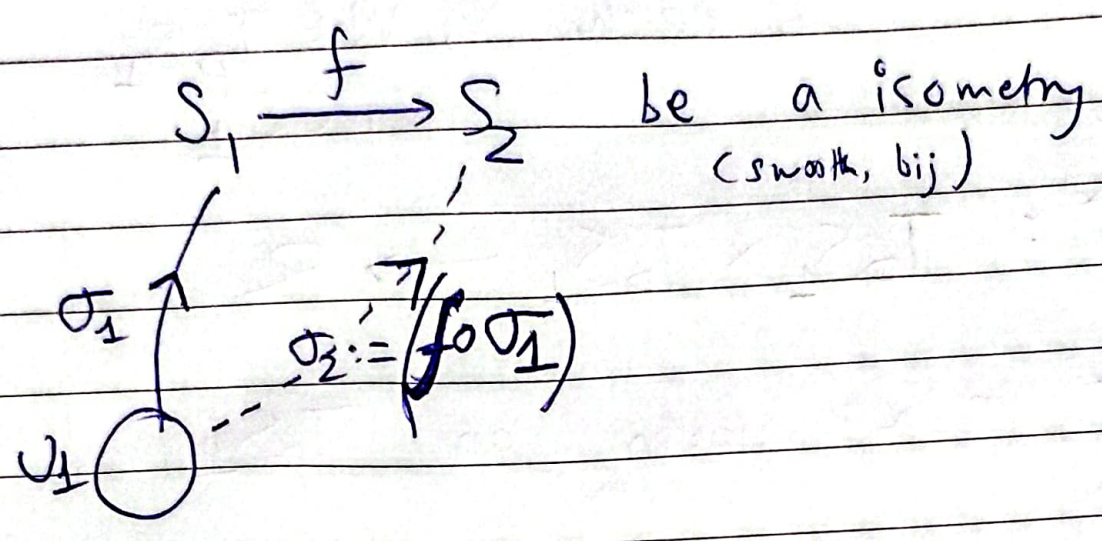 f
S₁ → S₂ be a isometry
(smooth, bij)
σ₁
σ₂ := (f∘σ₁)
U₁